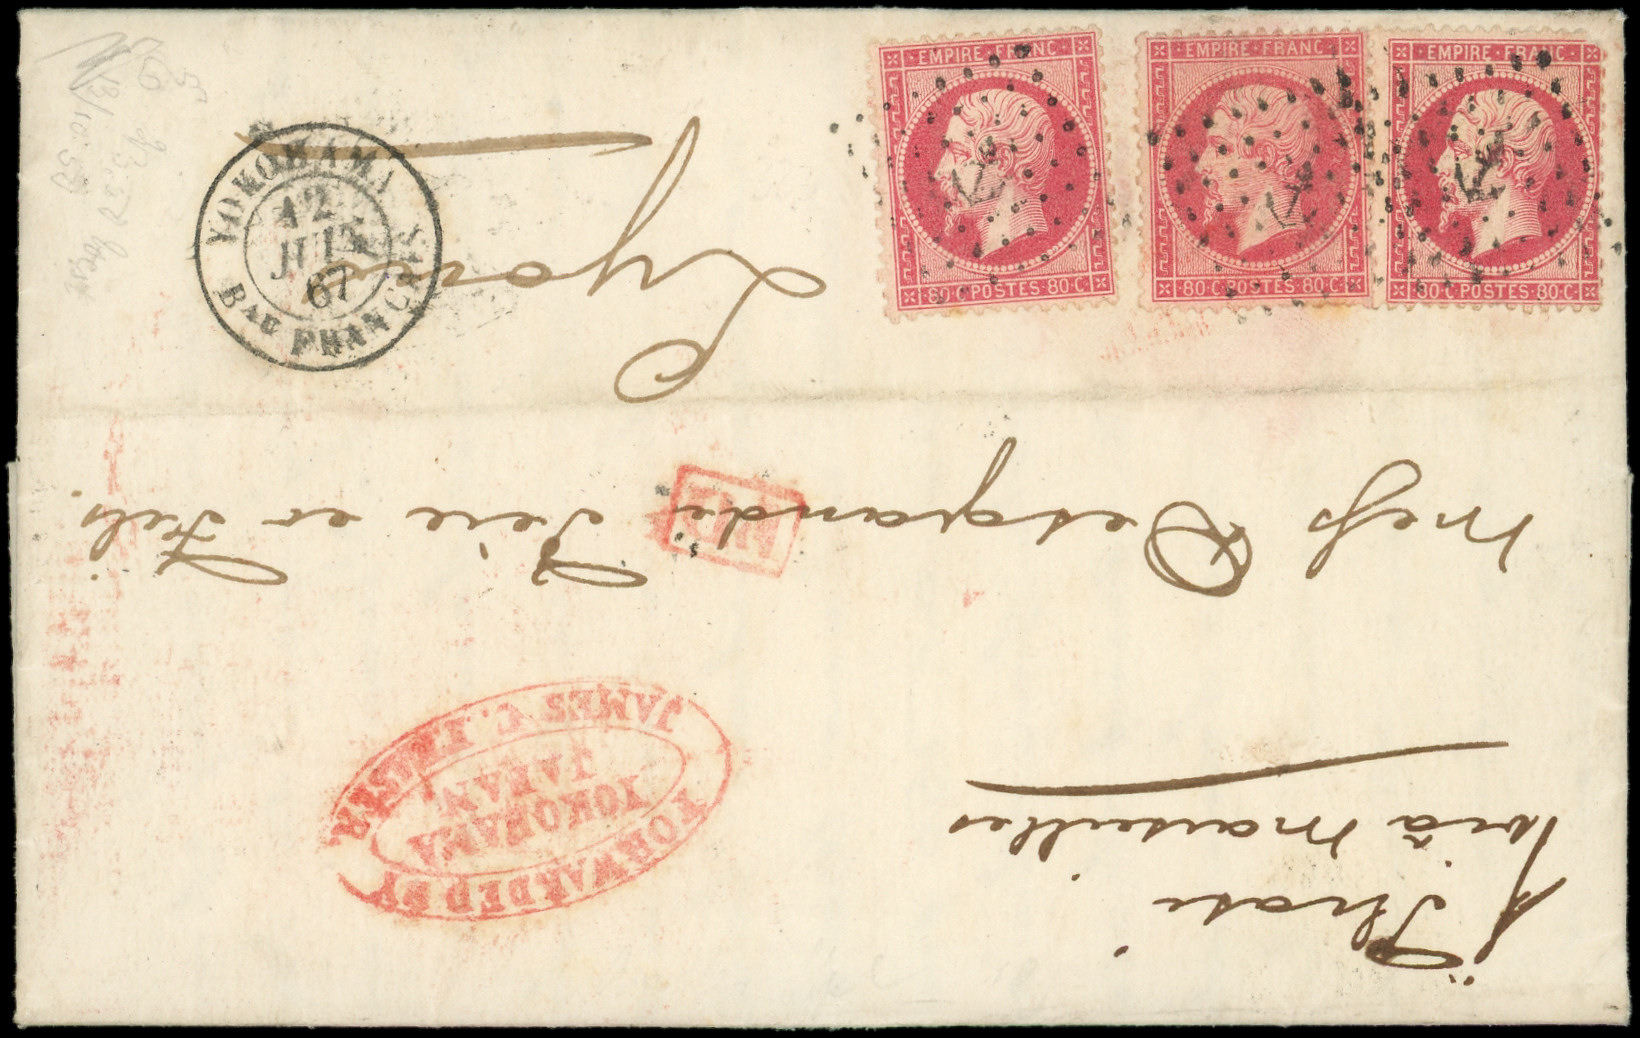 EMPIRE FRANC
80 C POSTES 80 C
EMPIRE FRANC
80 C POSTES 80 C
EMPIRE FRANC
80 C POSTES 80 C
YOKOHAMA
12
JUIN
67
BAU FRANCAIS
via Marseilles
Mess Desgrande Père et Fils.
Lyon
PD
FORWARDED BY
JAMES C. FRASER
YOKOHAMA
JAPAN